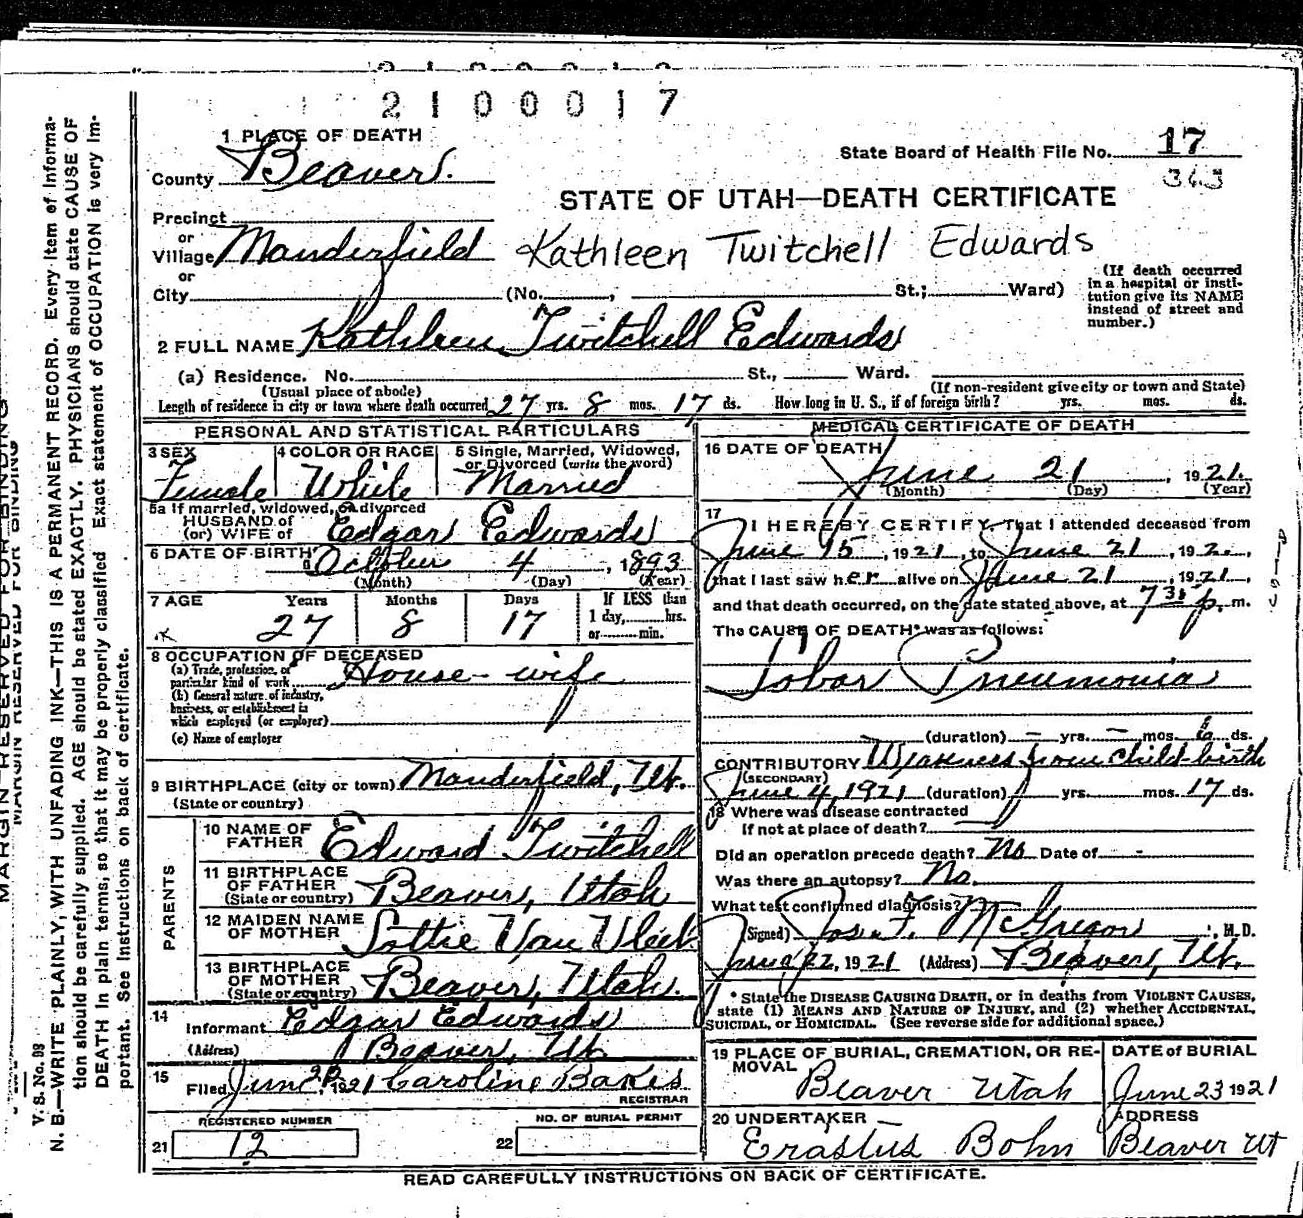 2100017
1 PLACE OF DEATH
County Beaver.
State Board of Health File No. 17
363
STATE OF UTAH—DEATH CERTIFICATE
Precinct
or
Village Manderfield
Kathleen Twitchell Edwards
or
City (No. , St.; Ward)
(If death occurred
in a hospital or insti-
tution give its NAME
instead of street and
number.)
2 FULL NAME Kathleen Twitchell Edwards
(a) Residence. No. St., Ward.
(Usual place of abode) (If non-resident give city or town and State)
Length of residence in city or town where death occurred 27 yrs. 8 mos. 17 ds. How long in U. S., if of foreign birth? yrs. mos. ds.
PERSONAL AND STATISTICAL PARTICULARS
3 SEX
Female
4 COLOR OR RACE
White
5 Single, Married, Widowed,
or Divorced (write the word)
Married
5a If married, widowed, or divorced
HUSBAND of
(or) WIFE of Edgar Edwards
6 DATE OF BIRTH October 4, 1893
(Month) (Day) (Year)
7 AGE Years Months Days If LESS than
1 day, hrs.
or min.
27 8 17
8 OCCUPATION OF DECEASED
(a) Trade, profession, or
particular kind of work House-wife
(b) General nature of industry,
business, or establishment in
which employed (or employer)
(c) Name of employer
9 BIRTHPLACE (city or town) Manderfield, Ut.
(State or country)
PARENTS
10 NAME OF
FATHER Edward Twitchell
11 BIRTHPLACE
OF FATHER Beaver, Utah
(State or country)
12 MAIDEN NAME
OF MOTHER Lottie Van Vleet
13 BIRTHPLACE
OF MOTHER Beaver, Utah.
(State or country)
14
Informant Edgar Edwards
(Address) Beaver, Ut.
15
Filed June 22, 1921 Caroline Bakes
REGISTRAR
REGISTERED NUMBER
21 12
NO. OF BURIAL PERMIT
22
MEDICAL CERTIFICATE OF DEATH
16 DATE OF DEATH
June 21, 1921.
(Month) (Day) (Year)
17
I HEREBY CERTIFY, That I attended deceased from
June 15, 1921, to June 21, 192.,
that I last saw her alive on June 21, 1921,
and that death occurred, on the date stated above, at 7 30 p. m.
The CAUSE OF DEATH* was as follows:
Lobar Pneumonia
(duration) — yrs. — mos. 6 ds.
CONTRIBUTORY Weakness from child-birth
(SECONDARY)
June 4, 1921 (duration) yrs. mos. 17 ds.
18 Where was disease contracted
If not at place of death?
Did an operation precede death? No Date of -
Was there an autopsy? No.
What test confirmed diagnosis?
(Signed) Jos. F. McGregor, M. D.
June 22, 1921 (Address) Beaver, Ut.
* State the DISEASE CAUSING DEATH, or in deaths from VIOLENT CAUSES,
state (1) MEANS AND NATURE OF INJURY, and (2) whether ACCIDENTAL,
SUICIDAL, or HOMICIDAL. (See reverse side for additional space.)
19 PLACE OF BURIAL, CREMATION, OR RE-
MOVAL
Beaver Utah
DATE of BURIAL
June 23 1921
20 UNDERTAKER
Erastus Bohn
ADDRESS
Beaver Ut
READ CAREFULLY INSTRUCTIONS ON BACK OF CERTIFICATE.
MARGIN RESERVED FOR BINDING
MARGIN RESERVED FOR BINDING
V. S. No. 98
N. B.—WRITE PLAINLY, WITH UNFADING INK—THIS IS A PERMANENT RECORD. Every item of informa-
tion should be carefully supplied. AGE should be stated EXACTLY. PHYSICIANS should state CAUSE OF
DEATH in plain terms, so that it may be properly classified. Exact statement of OCCUPATION is very im-
portant. See instructions on back of certificate.